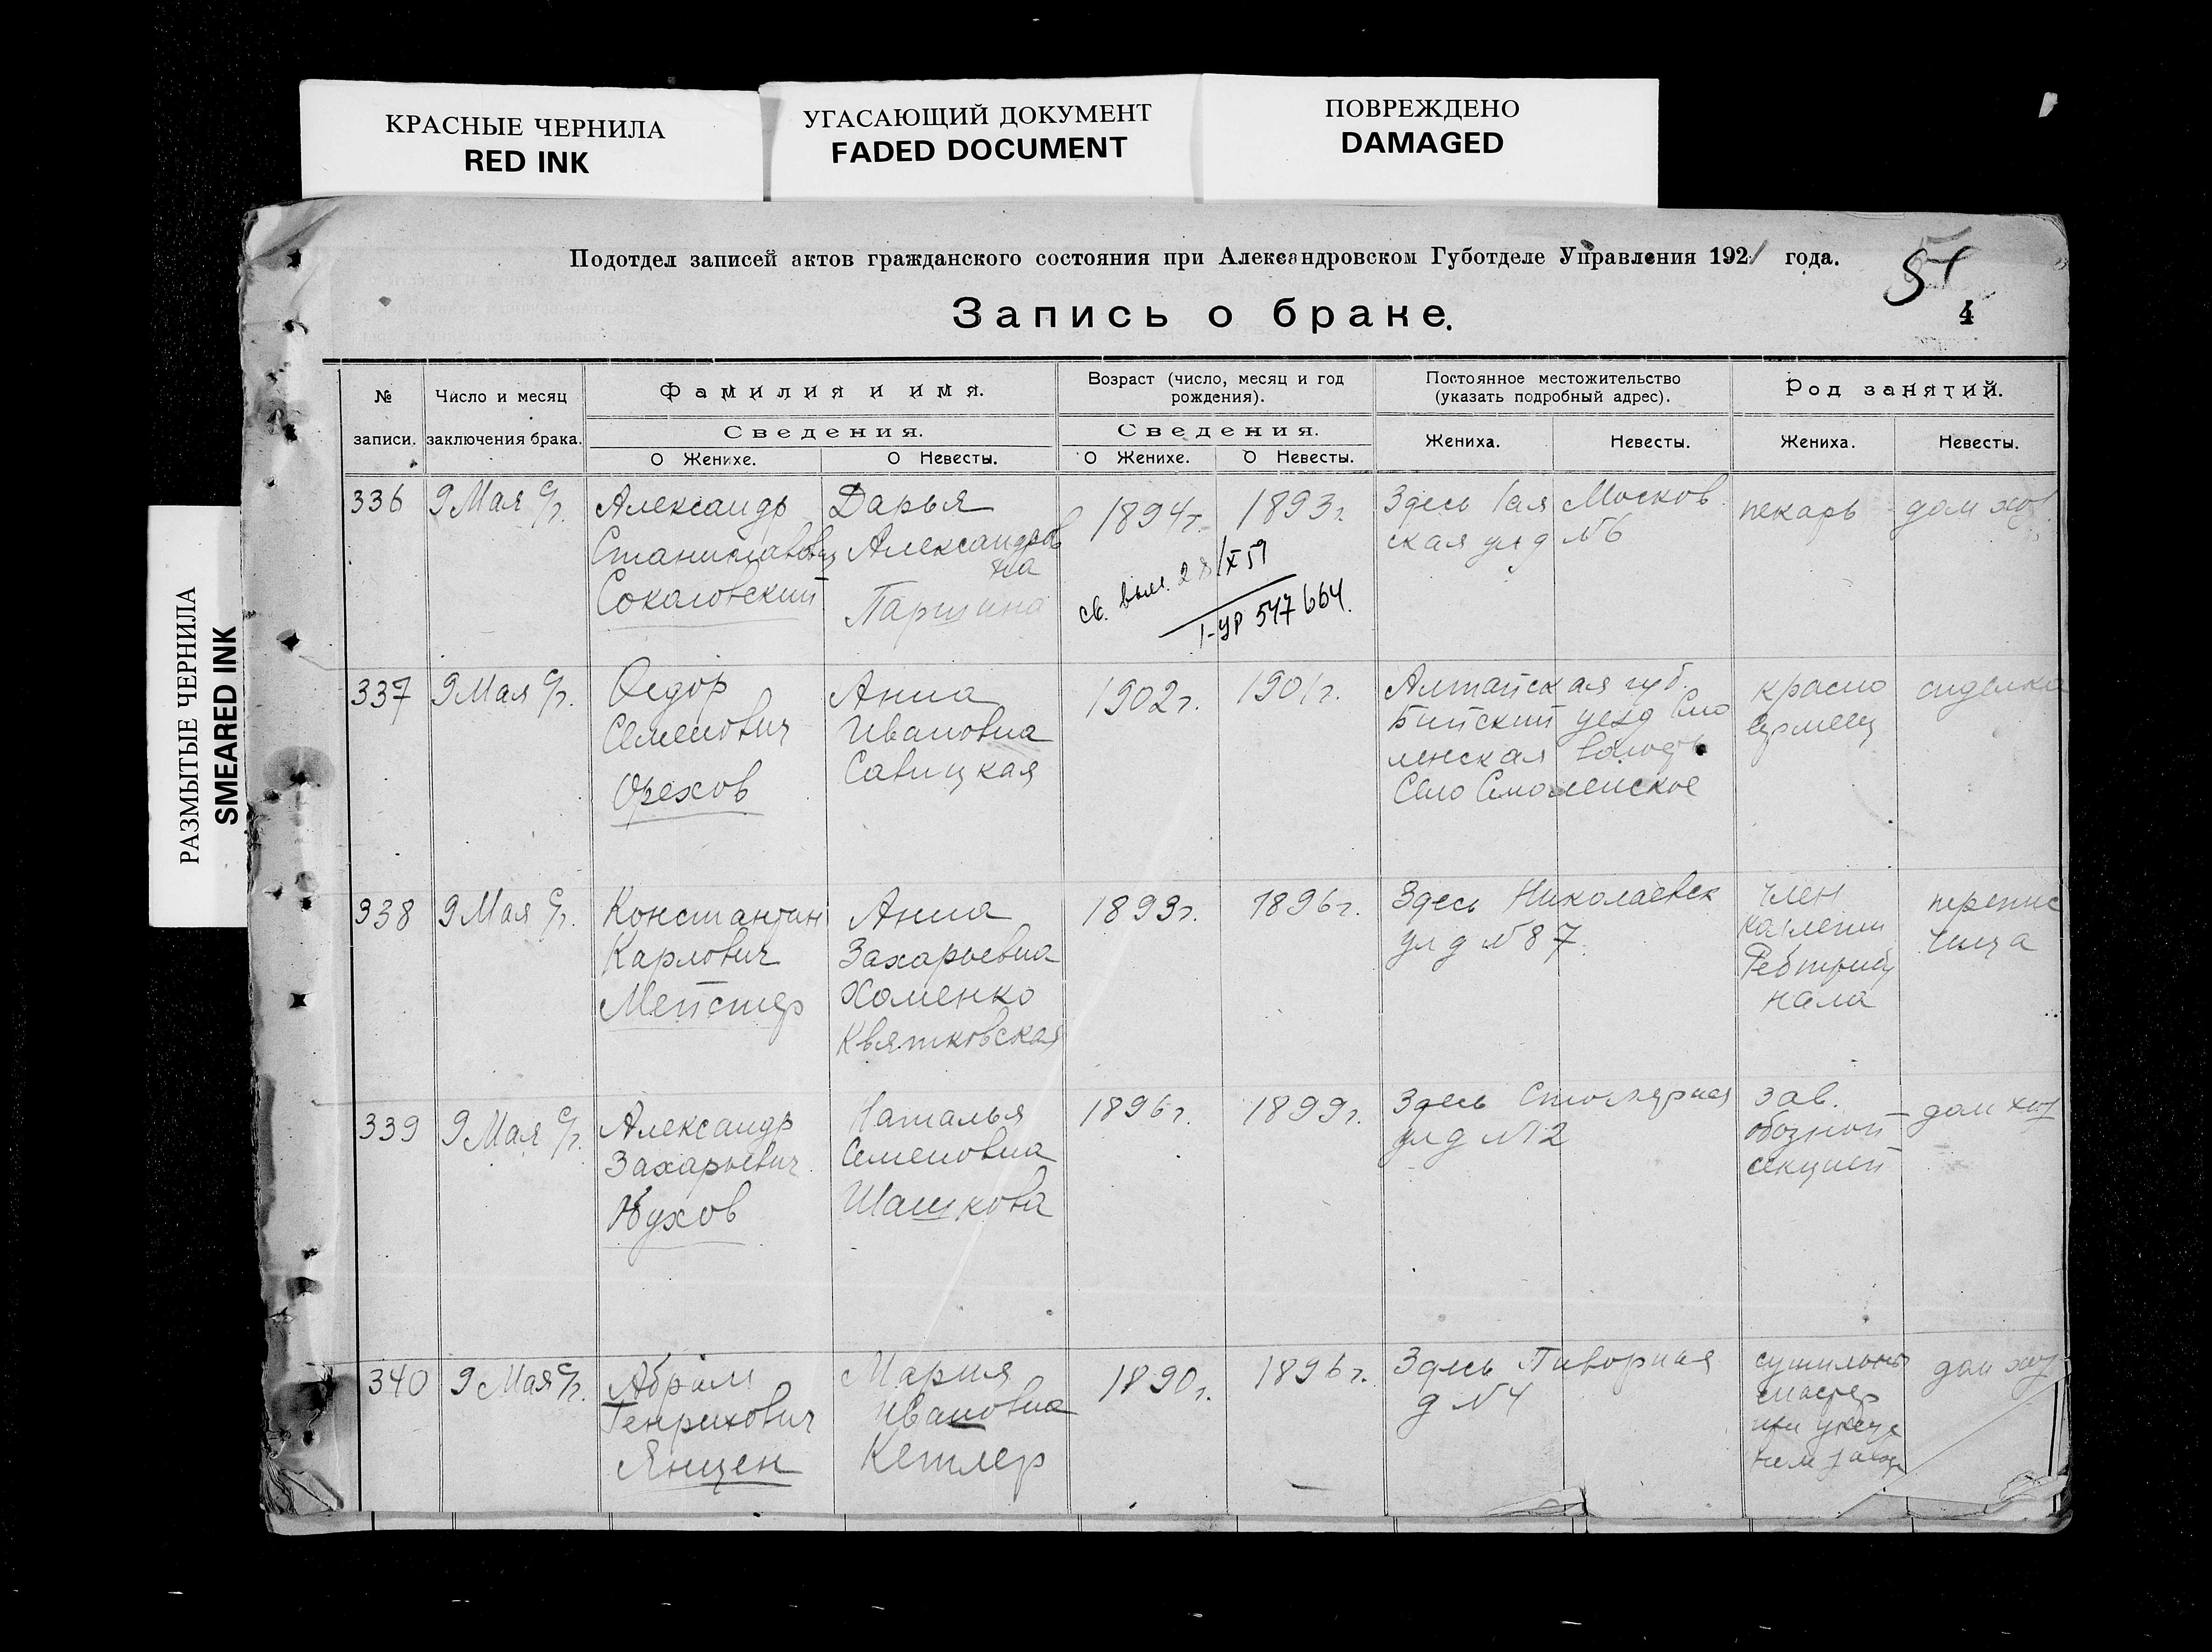 КРАСНЫЕ ЧЕРНИЛА
RED INK
УГАСАЮЩИЙ ДОКУМЕНТ
FADED DOCUMENT
ПОВРЕЖДЕНО
DAMAGED
РАЗМЫТЫЕ ЧЕРНИЛА
SMEARED INK
Подотдел записей актов гражданского состояния при Александровском Губотделе Управления 1921 года.
51
4
Запись о браке.
№ записи.
Число и месяц заключения брака.
Фамилия и имя.
Сведения.
О Женихе.
О Невесты.
Возраст (число, месяц и год рождения).
Сведения.
О Женихе.
О Невесты.
Постоянное местожительство (указать подробный адрес).
Жениха.
Невесты.
Род занятий.
Жениха.
Невесты.
336
9 Мая с/г.
Александр
Станиславович
Сокаловский
Дарья
Александров
на
Паршина
1894г.
1893г.
св. выл. 28/X 59
1-УР 547664.
Здесь 1ая Москов
ская ул д №6
пекарь
дом хоз
337
9 Мая с/г.
Федор
Семенович
Орехов
Анна
Ивановна
Савицкая
1902г.
1901г.
Алтайская губ.
Бийский уезд Смо
ленская волость
Село Смоленское
красно
армеец
сиделка
338
9 Мая с/г.
Константин
Карлович
Мейстер
Анна
Захарьевна
Хоменко
Квятковская
1893г.
1896г.
Здесь Николаевск
ул д №87.
член
Ребтрибу
нала
перепис
чица
339
9 Мая с/г.
Александр
Захарьевич
Обухов
Наталья
Семеновна
Шашкова
1896г.
1899г.
Здесь Столярная
ул д №12
зав.
обозной
секцией
дом хоз
340
9 Мая с/г.
Абрам
Генрихович
Янцен
Мария
Ивановна
Кетлер
1890г.
1896г.
Здесь Пиворная
д №4
мастер
при
дом хоз